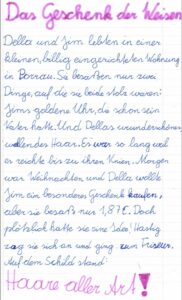 Das Geschenk der Weisen
Della und Jim lebten in einer
kleinen, billig eingerichteten Wohnung
in Sie besaßen nur zwei
Dinge, auf die sie beide stolz waren:
Jims goldene Uhr, die schon sein
Vater hatte. Und Dellas wunderschönes
wallendes Haar. Es war so lang und
es reichte bis zu ihren Knien. Morgen
war Weihnachten und Della wollte
Jim ein besonderes Geschenk kaufen,
aber sie besaß nur 1,87€. Doch
plötzlich hatte sie eine Idee. Hastig
zog sie sich an und ging zum Friseur.
Auf dem Schild stand:
Haare aller Art!